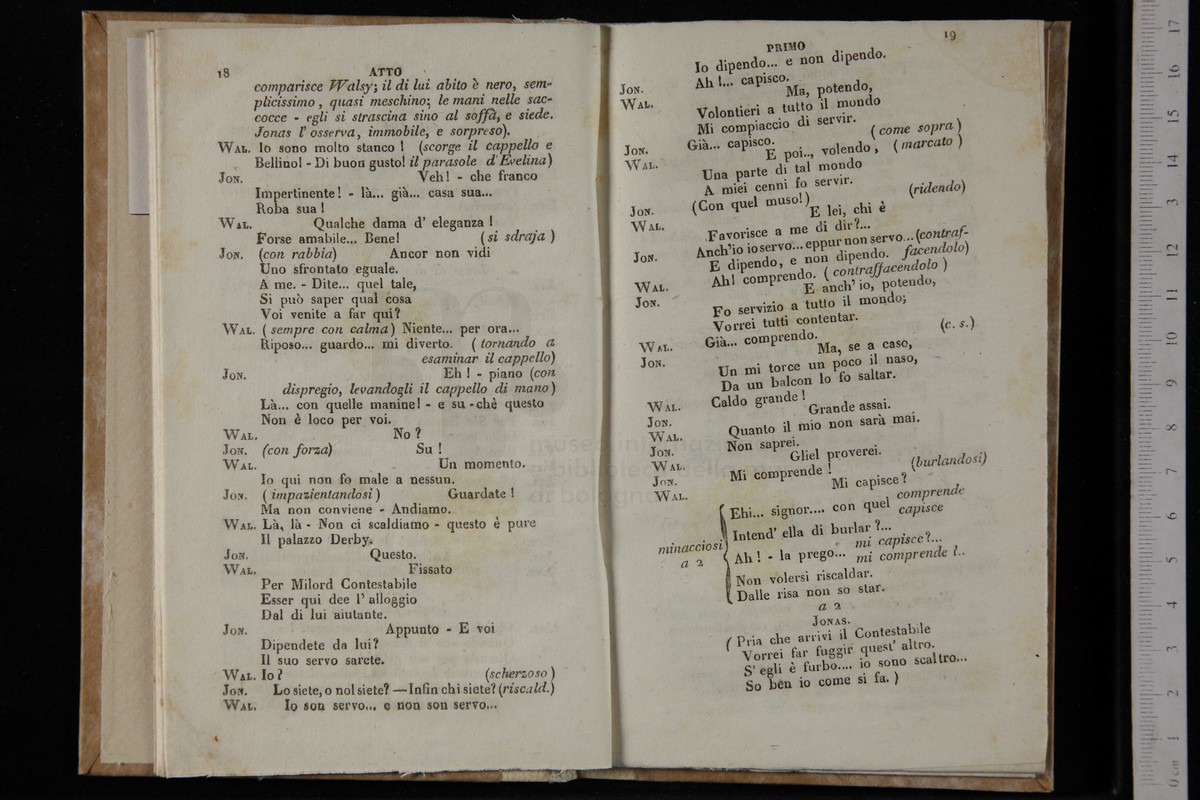 18 ATTO
comparisce Walsy; il di lui abito è nero, sem-
plicissimo, quasi meschino; le mani nelle sac-
cocce - egli si strascina sino al soffà, e siede.
Jonas l' osserva, immobile, e sorpreso).
WAL. Io sono molto stanco ! (scorge il cappello e
Bellino! - Di buon gusto! il parasole d' Evelina)
JON. Veh! - che franco
Impertinente! - là... già... casa sua...
Roba sua !
WAL. Qualche dama d' eleganza !
Forse amabile... Bene! (si sdraja)
JON. (con rabbia) Ancor non vidi
Uno sfrontato eguale.
A me. - Dite... quel tale,
Si può saper qual cosa
Voi venite a far quì?
WAL. (sempre con calma) Niente... per ora...
Riposo... guardo... mi diverto. (tornando a
esaminar il cappello)
JON. Eh ! - piano (con
dispregio, levandogli il cappello di mano)
Là... con quelle manine! - e su - chè questo
Non è loco per voi.
WAL. No ?
JON. (con forza) Su !
WAL. Un momento.
Io qui non fo male a nessun.
JON. (impazientandosi) Guardate !
Ma non conviene - Andiamo.
WAL. Là, là - Non ci scaldiamo - questo è pure
Il palazzo Derby.
JON. Questo.
WAL. Fissato
Per Milord Contestabile
Esser qui dee l' alloggio
Dal di lui aiutante.
JON. Appunto - E voi
Dipendete da lui?
Il suo servo sarete.
WAL. Io? (scherzoso)
JON. Lo siete, o nol siete? — Infin chi siete? (riscald.)
WAL. Io son servo... e non son servo...
PRIMO 19
Io dipendo... e non dipendo.
JON. Ah !... capisco.
WAL. Ma, potendo,
Volontieri a tutto il mondo
Mi compiaccio di servir.
JON. Già... capisco. (come sopra)
WAL. E poi.., volendo, (marcato)
Una parte di tal mondo
A miei cenni fo servir.
JON. (Con quel muso!) (ridendo)
WAL. E lei, chi è
Favorisce a me di dir?...
JON. Anch'io io servo... eppur non servo... (contraf-
E dipendo, e non dipendo. facendolo)
WAL. Ah! comprendo. (contraffacendolo)
JON. E anch' io, potendo,
Fo servizio a tutto il mondo;
Vorrei tutti contentar.
WAL. Già... comprendo. (c. s.)
JON. Ma, se a caso,
Un mi torce un poco il naso,
Da un balcon lo fo saltar.
WAL. Caldo grande !
JON. Grande assai.
WAL. Quanto il mio non sarà mai.
JON. Non saprei.
WAL. Gliel proverei.
JON. Mi comprende ! (burlandosi)
WAL. Mi capisce?
comprende
Ehi... signor.... con quel capisce
Intend' ella di burlar ?...
minacciosi mi capisce?...
a 2 Ah ! - la prego... mi comprende ?..
Non volersi riscaldar.
Dalle risa non so star.
a 2
JONAS.
(Pria che arrivi il Contestabile
Vorrei far fuggir quest' altro.
S' egli è furbo.... io sono scaltro...
So ben io come si fa.)